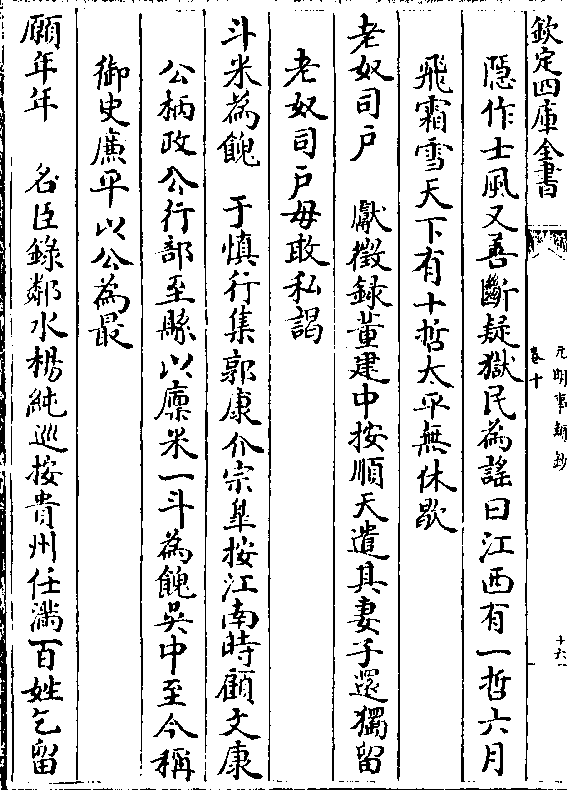 欽定四庫全書
元明事類鈔
卷十
十六
隠作士風又善斷疑獄民為謡曰江西有一哲六月
飛霜雪天下有十哲太平無休歇
老奴司戸　獻徵録董建中按順天遣其妻子還獨留
老奴司戸毋敢私謁
斗米為餽　于慎行集郭康介宗臯按江南時顧文康
公柄政公行部至縣以廪米一斗為餽吳中至今稱
御史廉平以公為最
願年年　名臣錄鄰水楊純巡按貴州任滿百姓乞留